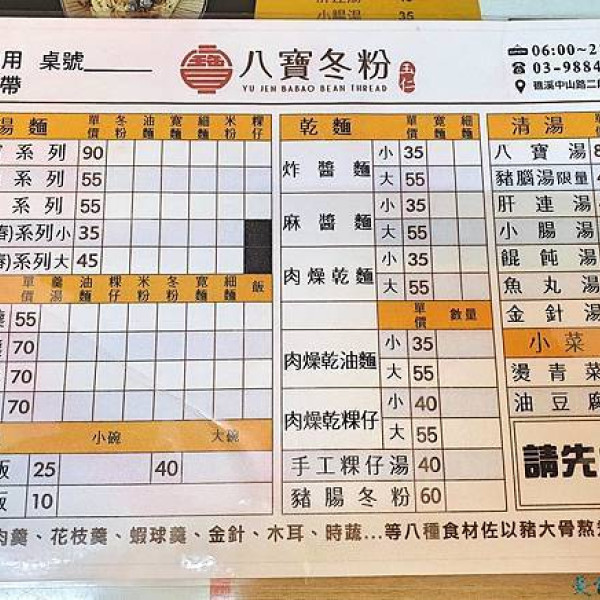 小腸湯 35
用 桌號
帶
八寶冬粉
玉仁
YU JEN BABAO BEAN THREAD
06:00~2
03-9884
礁溪中山路二
湯麵 單價 冬粉 油麵 寬麵 細麵 米粉 粿仔
系列 90
系列 55
系列 55
系列 小 35
系列 大 45
單價 羹湯 油麵 粿仔 米粉 冬粉 寬麵 細麵 飯
55
70
70
70
小碗 大碗
飯 25 40
飯 10
乾麵 單價 寬麵 細麵
炸醬麵 小 35
大 55
麻醬麵 小 35
大 55
肉燥乾麵 小 35
大 55
單價 數量
肉燥乾油麵 小 35
大 55
肉燥乾粿仔 小 40
大 55
手工粿仔湯 40
豬腸冬粉 60
清湯 單價
八寶湯 8
豬腦湯限量
肝連湯
小腸湯
餛飩湯
魚丸湯
金針湯
小菜
燙青菜
油豆腐
請先
肉羹、花枝羹、蝦球羹、金針、木耳、時蔬...等八種食材佐以豬大骨熬